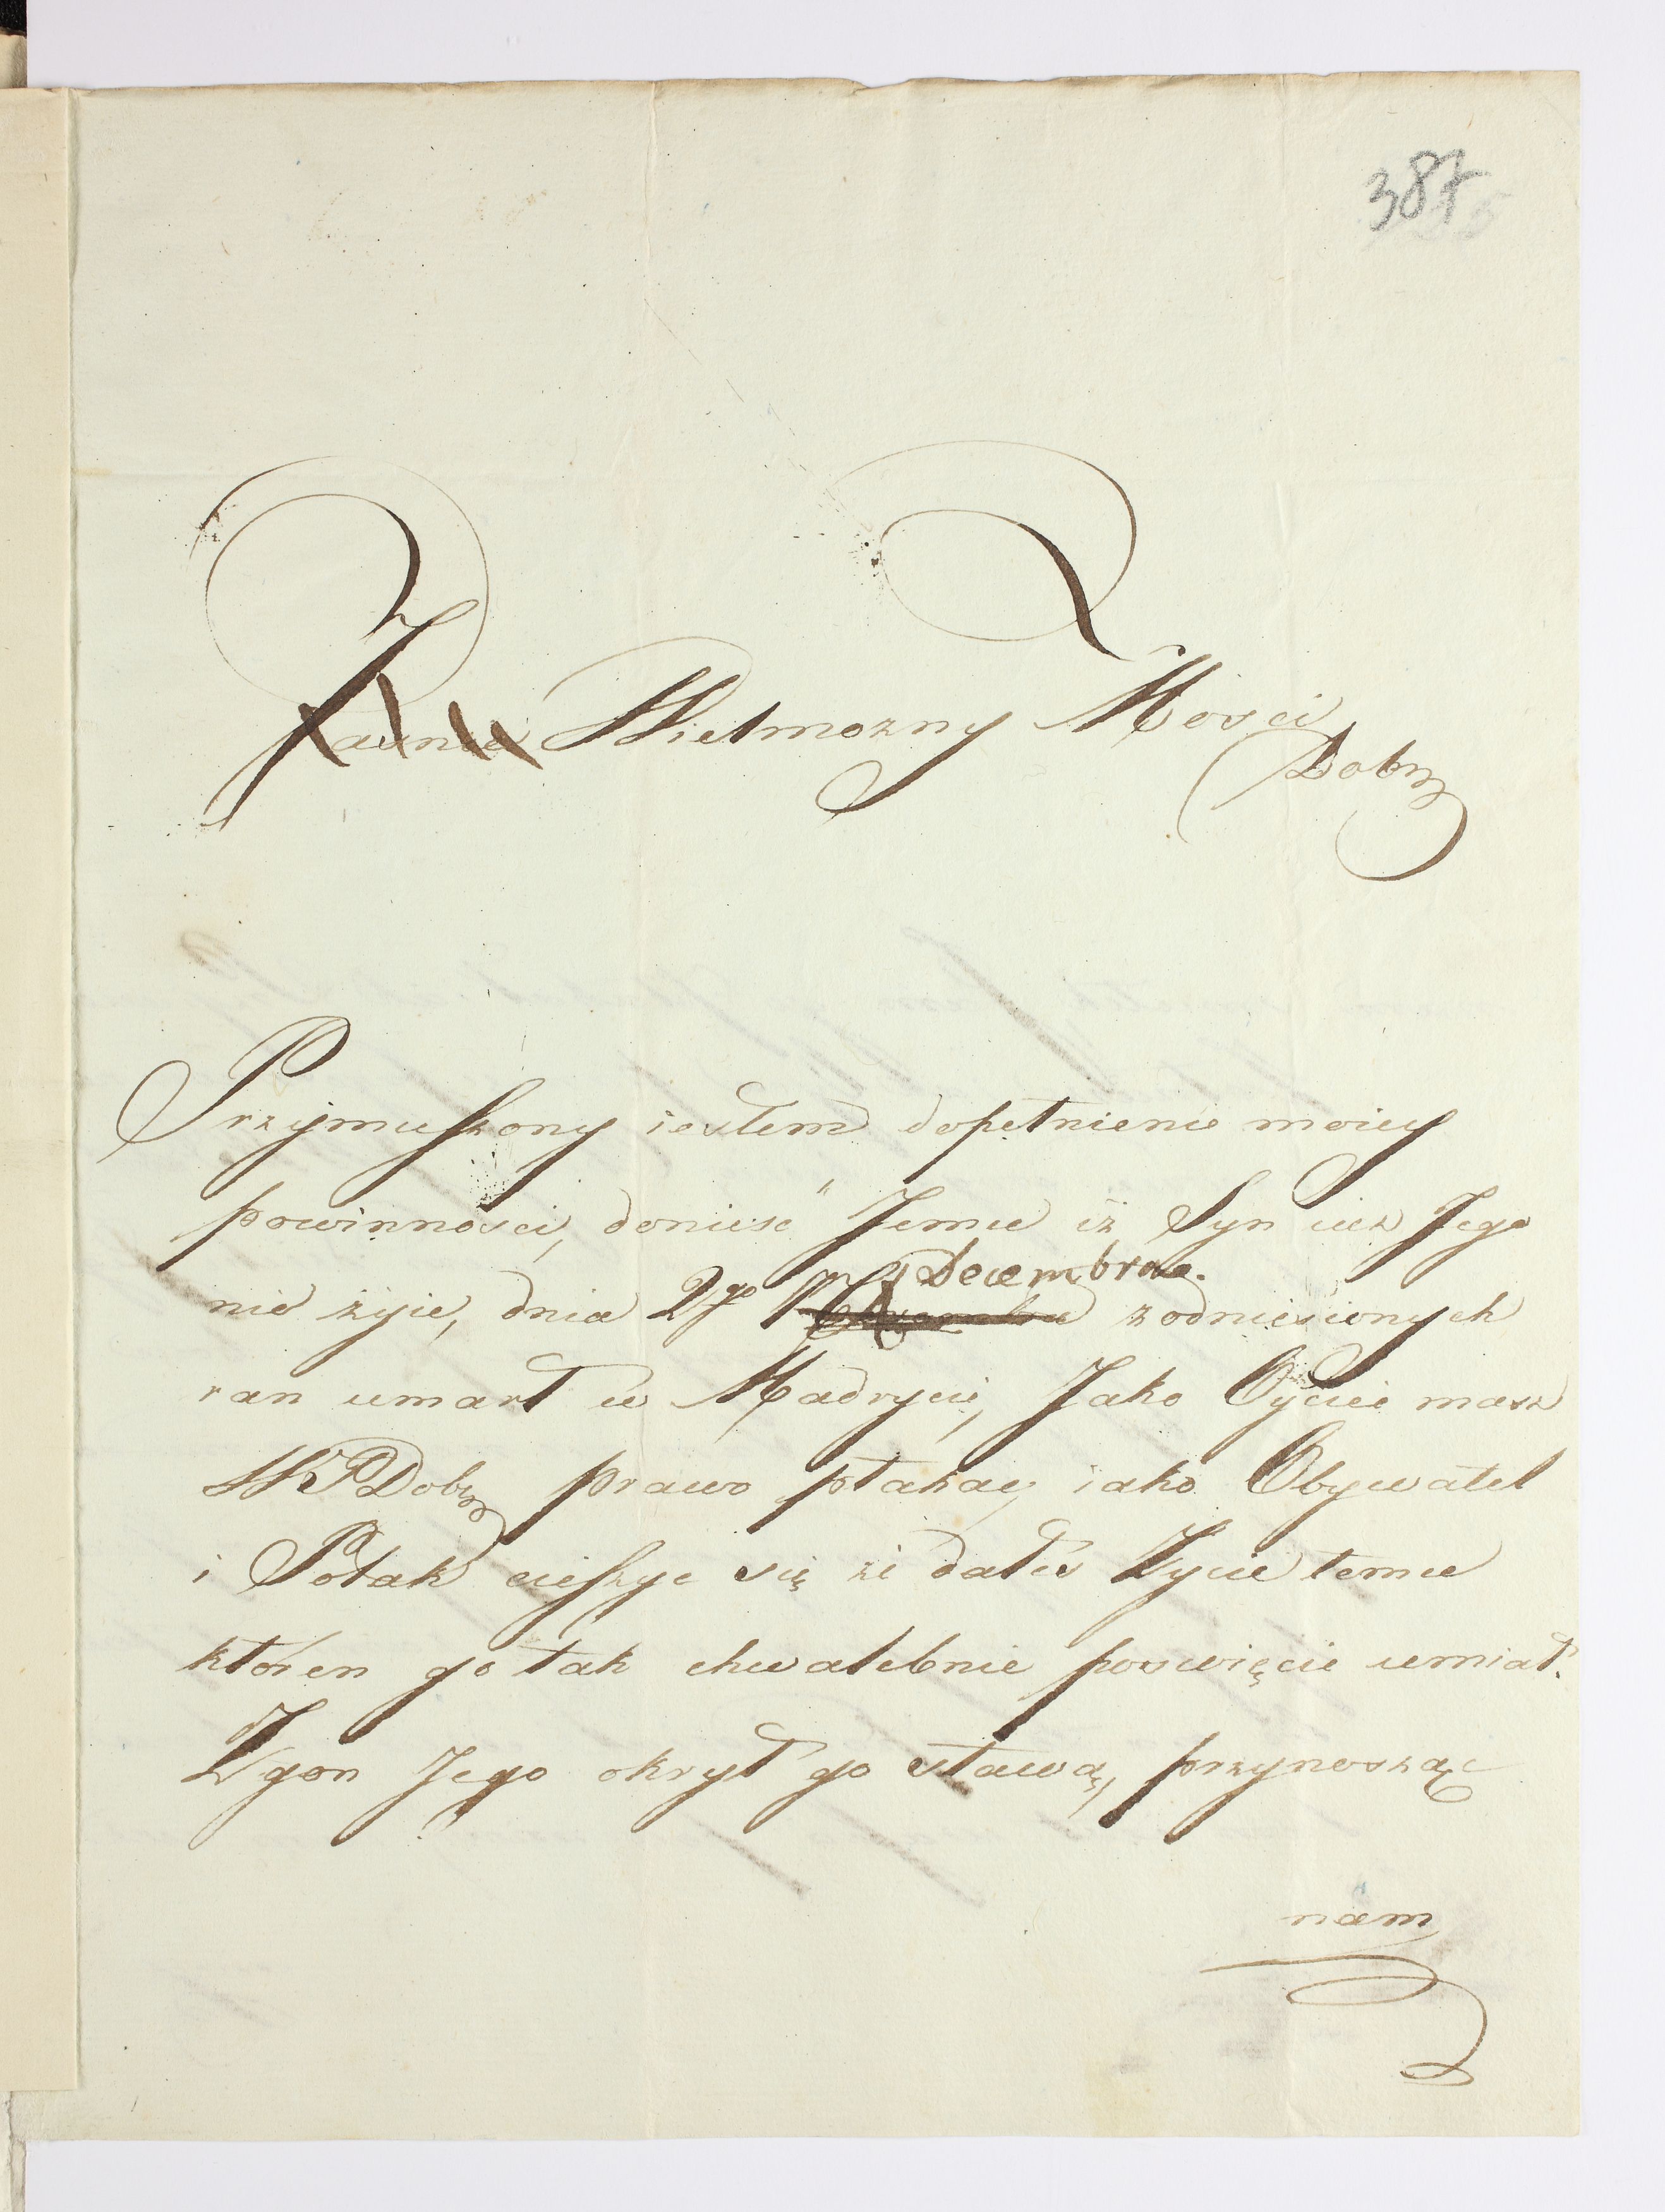 387
Jaśnie Wielmozny Mosci
Dobrz
Przymuszony iestem dopełnienie moiey
powinnosci, doniesc Jemu iż Syn iuz Jego
Decembra.
nie żyie, dnia 2go z odniesionych
ran umarł w Madrycie, Jako Oyciec masz
WPDobrz prawo płakac, iako Obywatel
i Polak cieszyc się że dałes Zycie temu
ktoren go tak chwalebnie poswięcic umiał.
Zgon Jego okrył go sławą, przynosząc
nam